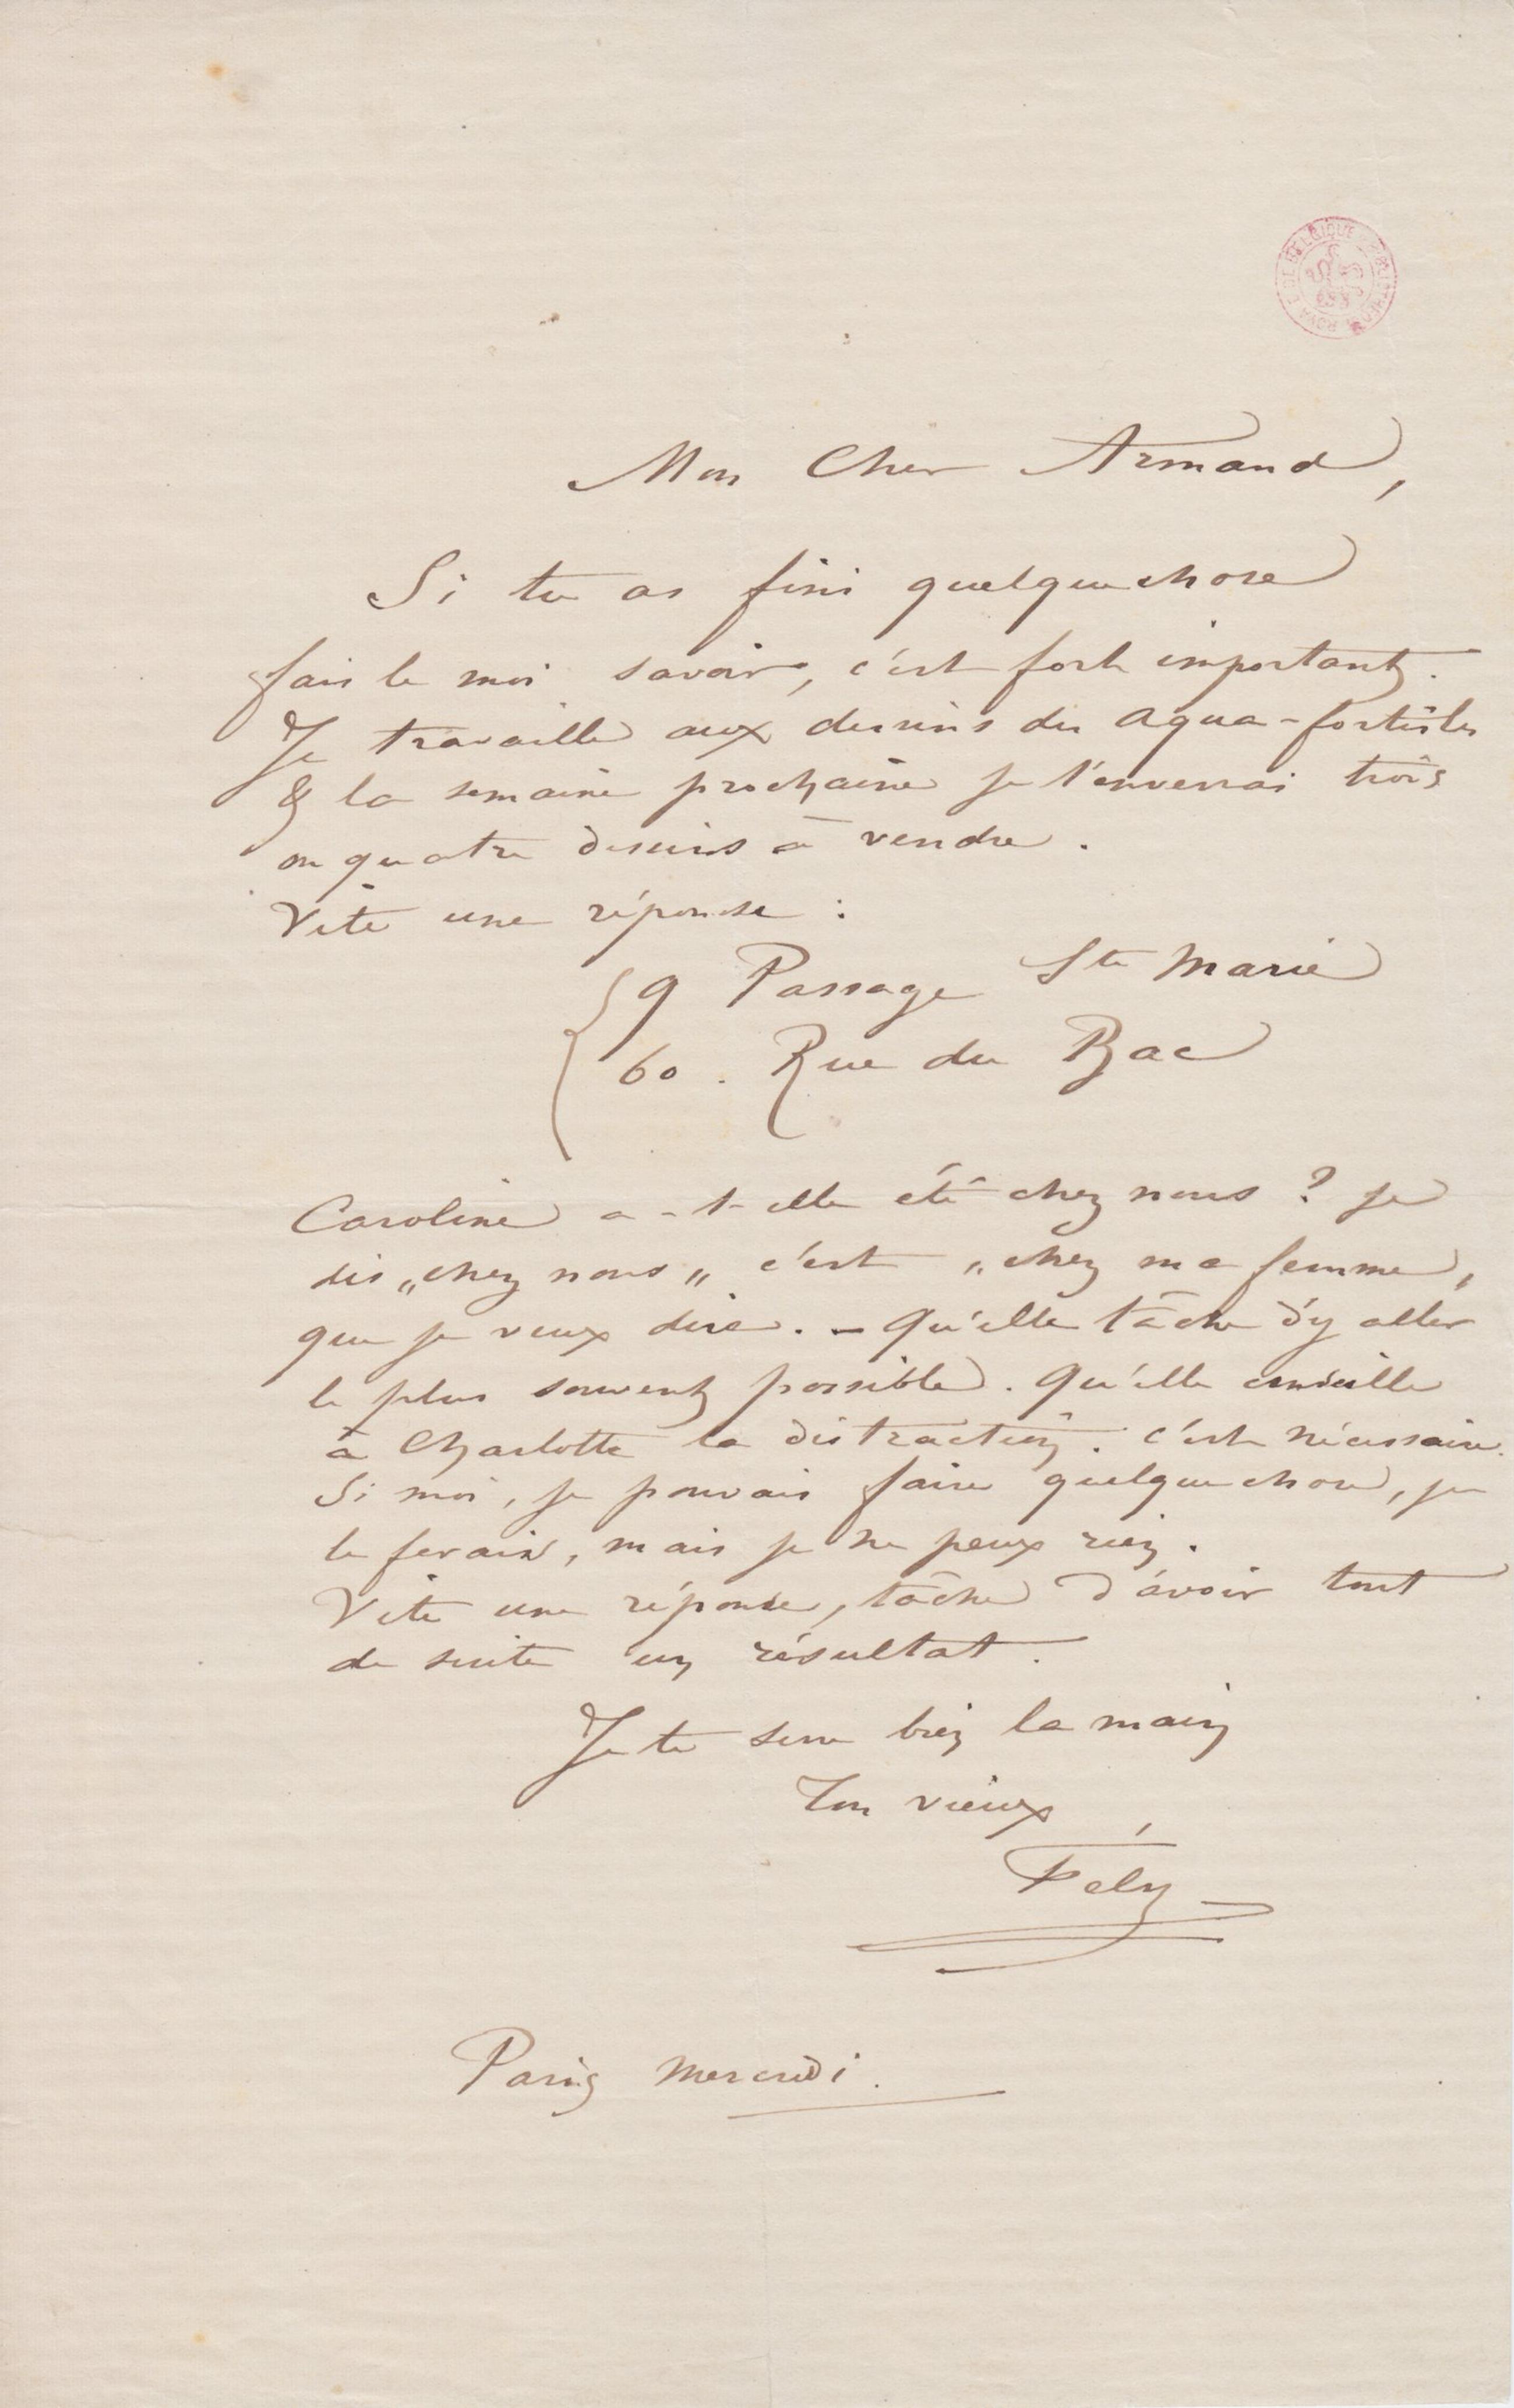 BIBLIOTHÈQUE ROYALE DE BELGIQUE
Mon Cher Armand,
Si tu as fini quelquechose
fais le moi savoir, c'est fort important.
Je travaille aux dessins des aqua-fortistes
& la semaine prochaine je t'enverrai trois
ou quatre dessins à vendre.
Vite une réponse :
9 Passage Ste Marie
60. Rue du Bac
Caroline a-t-elle été chez nous ? Je
dis „chez nous„ c'est „chez ma femme„
que je veux dire. – Qu'elle tâche d'y aller
le plus souvent possible. Qu'elle conseille
à Charlotte la distraction. c'est nécessaire.
Si moi, je pouvais faire quelquechose, je
le ferais, mais je ne peux rien.
Vite une réponse, tâche d'avoir tout
de suite un résultat.
Je te serre bien la main
Ton vieux
Fély
Paris mercredi.